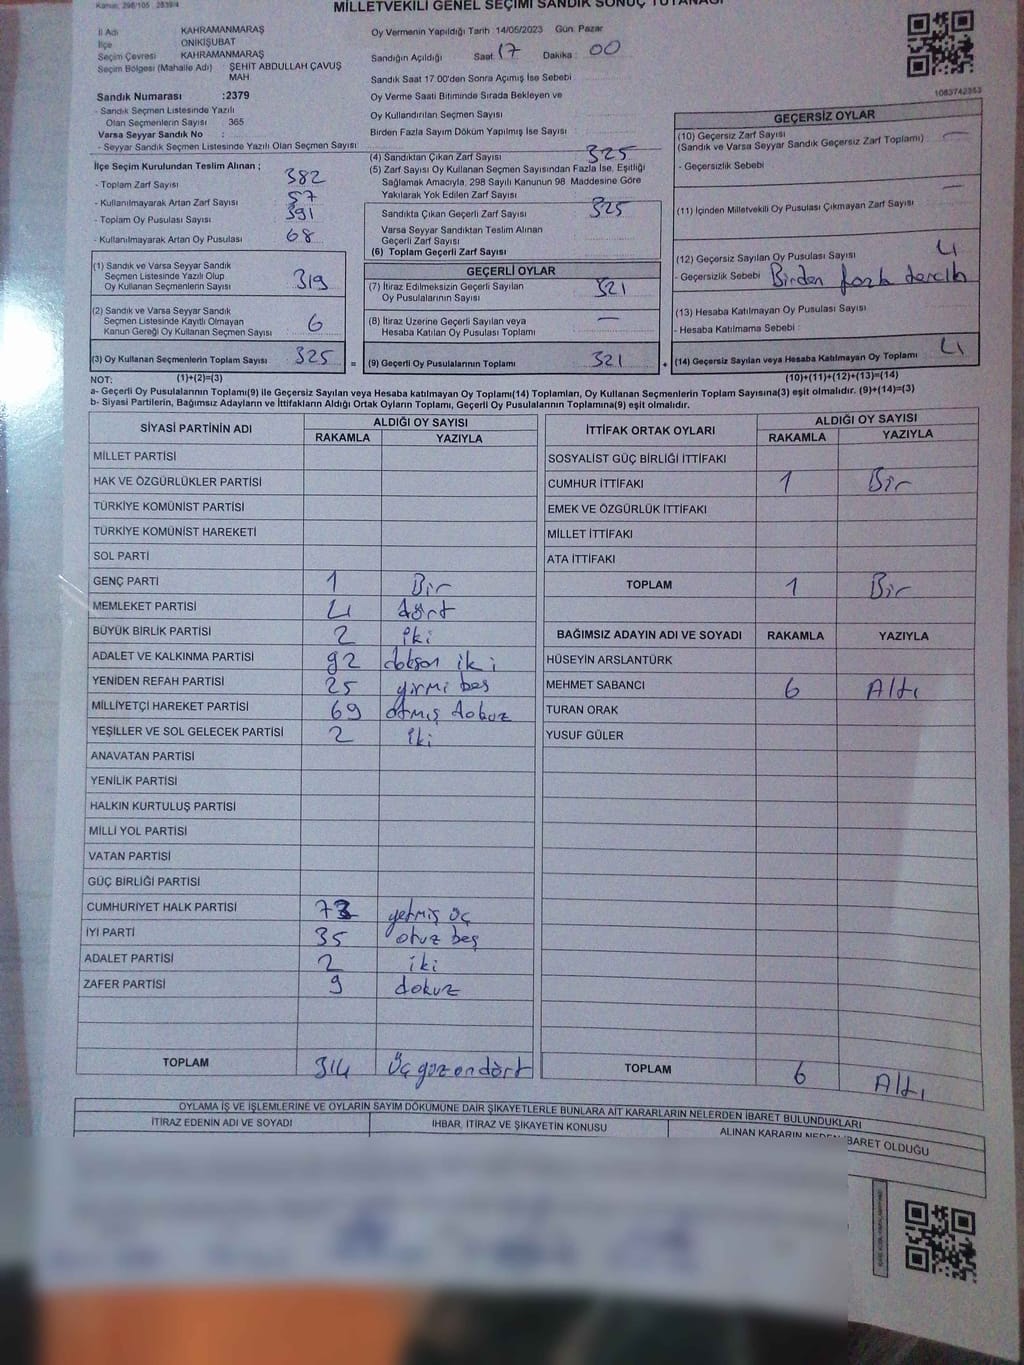 MİLLETVEKİLİ GENEL SEÇİMİ SANDIK SONUÇ TUTANAĞI
İl Adı KAHRAMANMARAŞ
İlçe ONİKİŞUBAT
Seçim Çevresi KAHRAMANMARAŞ
Seçim Bölgesi (Mahalle Adı) ŞEHİT ABDULLAH ÇAVUŞ MAH
Sandık Numarası :2379
- Sandık Seçmen Listesinde Yazılı
Olan Seçmenlerin Sayısı 365
Varsa Seyyar Sandık No :
- Seyyar Sandık Seçmen Listesinde Yazılı Olan Seçmen Sayısı
Oy Vermenin Yapıldığı Tarih 14/05/2023 Gün: Pazar
Sandığın Açıldığı Saat 17 Dakika : 00
Sandık Saat 17.00'den Sonra Açımış İse Sebebi
Oy Verme Saati Bitiminde Sırada Bekleyen ve
Oy Kullandırılan Seçmen Sayısı
Birden Fazla Sayım Döküm Yapılmış İse Sayısı :
1083742353
İlçe Seçim Kurulundan Teslim Alınan ;
- Toplam Zarf Sayısı : 382
- Kullanılmayarak Artan Zarf Sayısı : 57
- Toplam Oy Pusulası Sayısı : 391
- Kullanılmayarak Artan Oy Pusulası : 68
(1) Sandık ve Varsa Seyyar Sandık
Seçmen Listesinde Yazılı Olup
Oy Kullanan Seçmenlerin Sayısı : 319
(2) Sandık ve Varsa Seyyar Sandık
Seçmen Listesinde Kayıtlı Olmayan
Kanun Gereği Oy Kullanan Seçmen Sayısı : 6
(3) Oy Kullanan Seçmenlerin Toplam Sayısı : 325
(1)+(2)=(3)
(4) Sandıktan Çıkan Zarf Sayısı 325
(5) Zarf Sayısı Oy Kullanan Seçmen Sayısından Fazla İse, Eşitliği
Sağlamak Amacıyla, 298 Sayılı Kanunun 98. Maddesine Göre
Yakılarak Yok Edilen Zarf Sayısı
Sandıkta Çıkan Geçerli Zarf Sayısı : 325
Varsa Seyyar Sandıktan Teslim Alınan
Geçerli Zarf Sayısı
(6) Toplam Geçerli Zarf Sayısı :
GEÇERLİ OYLAR
(7) İtiraz Edilmeksizin Geçerli Sayılan
Oy Pusulalarının Sayısı : 321
(8) İtiraz Üzerine Geçerli Sayılan veya
Hesaba Katılan Oy Pusulası Toplamı : —
= (9) Geçerli Oy Pusulalarının Toplamı : 321
GEÇERSİZ OYLAR
(10) Geçersiz Zarf Sayısı
(Sandık ve Varsa Seyyar Sandık Geçersiz Zarf Toplamı) : —
- Geçersizlik Sebebi :
—
(11) İçinden Milletvekili Oy Pusulası Çıkmayan Zarf Sayısı :
(12) Geçersiz Sayılan Oy Pusulası Sayısı : 4
- Geçersizlik Sebebi : Birden fazla tercih
(13) Hesaba Katılmayan Oy Pusulası Sayısı :
- Hesaba Katılmama Sebebi :
+ (14) Geçersiz Sayılan veya Hesaba Katılmayan Oy Toplamı : 4
(10)+(11)+(12)+(13)=(14)
NOT:
a- Geçerli Oy Pusulalarının Toplamı(9) ile Geçersiz Sayılan veya Hesaba katılmayan Oy Toplamı(14) Toplamları, Oy Kullanan Seçmenlerin Toplam Sayısına(3) eşit olmalıdır. (9)+(14)=(3)
b- Siyasi Partilerin, Bağımsız Adayların ve İttifakların Aldığı Ortak Oyların Toplamı, Geçerli Oy Pusulalarının Toplamına(9) eşit olmalıdır.
SİYASİ PARTİNİN ADI ALDIĞI OY SAYISI
RAKAMLA YAZIYLA
MİLLET PARTİSİ
HAK VE ÖZGÜRLÜKLER PARTİSİ
TÜRKİYE KOMÜNİST PARTİSİ
TÜRKİYE KOMÜNİST HAREKETİ
SOL PARTİ
GENÇ PARTİ 1 Bir
MEMLEKET PARTİSİ 4 dört
BÜYÜK BİRLİK PARTİSİ 2 iki
ADALET VE KALKINMA PARTİSİ 92 doksan iki
YENİDEN REFAH PARTİSİ 25 yirmi beş
MİLLİYETÇİ HAREKET PARTİSİ 69 atmış dokuz
YEŞİLLER VE SOL GELECEK PARTİSİ 2 iki
ANAVATAN PARTİSİ
YENİLİK PARTİSİ
HALKIN KURTULUŞ PARTİSİ
MİLLİ YOL PARTİSİ
VATAN PARTİSİ
GÜÇ BİRLİĞİ PARTİSİ
CUMHURİYET HALK PARTİSİ 73 yetmiş üç
İYİ PARTİ 35 otuz beş
ADALET PARTİSİ 2 iki
ZAFER PARTİSİ 9 dokuz
TOPLAM 314 Üç yüz ondört
İTTİFAK ORTAK OYLARI ALDIĞI OY SAYISI
RAKAMLA YAZIYLA
SOSYALİST GÜÇ BİRLİĞİ İTTİFAKI
CUMHUR İTTİFAKI 1 Bir
EMEK VE ÖZGÜRLÜK İTTİFAKI
MİLLET İTTİFAKI
ATA İTTİFAKI
TOPLAM 1 Bir
BAĞIMSIZ ADAYIN ADI VE SOYADI RAKAMLA YAZIYLA
HÜSEYİN ARSLANTÜRK
MEHMET SABANCI 6 Altı
TURAN ORAK
YUSUF GÜLER
TOPLAM 6 Altı
OYLAMA İŞ VE İŞLEMLERİNE VE OYLARIN SAYIM DÖKÜMÜNE DAİR ŞİKAYETLERLE BUNLARA AİT KARARLARIN NELERDEN İBARET BULUNDUKLARI
İTİRAZ EDENİN ADI VE SOYADI İHBAR, İTİRAZ VE ŞİKAYETİN KONUSU ALINAN KARARIN NEDEN İBARET OLDUĞU